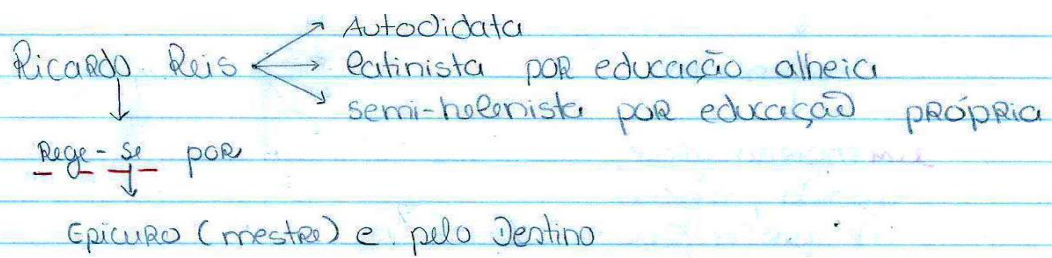 Autodidata
Ricardo Reis
latinista por educação alheia
semi-helenista por educação própria
Rege-se por
Epicuro (mestre) e pelo Destino